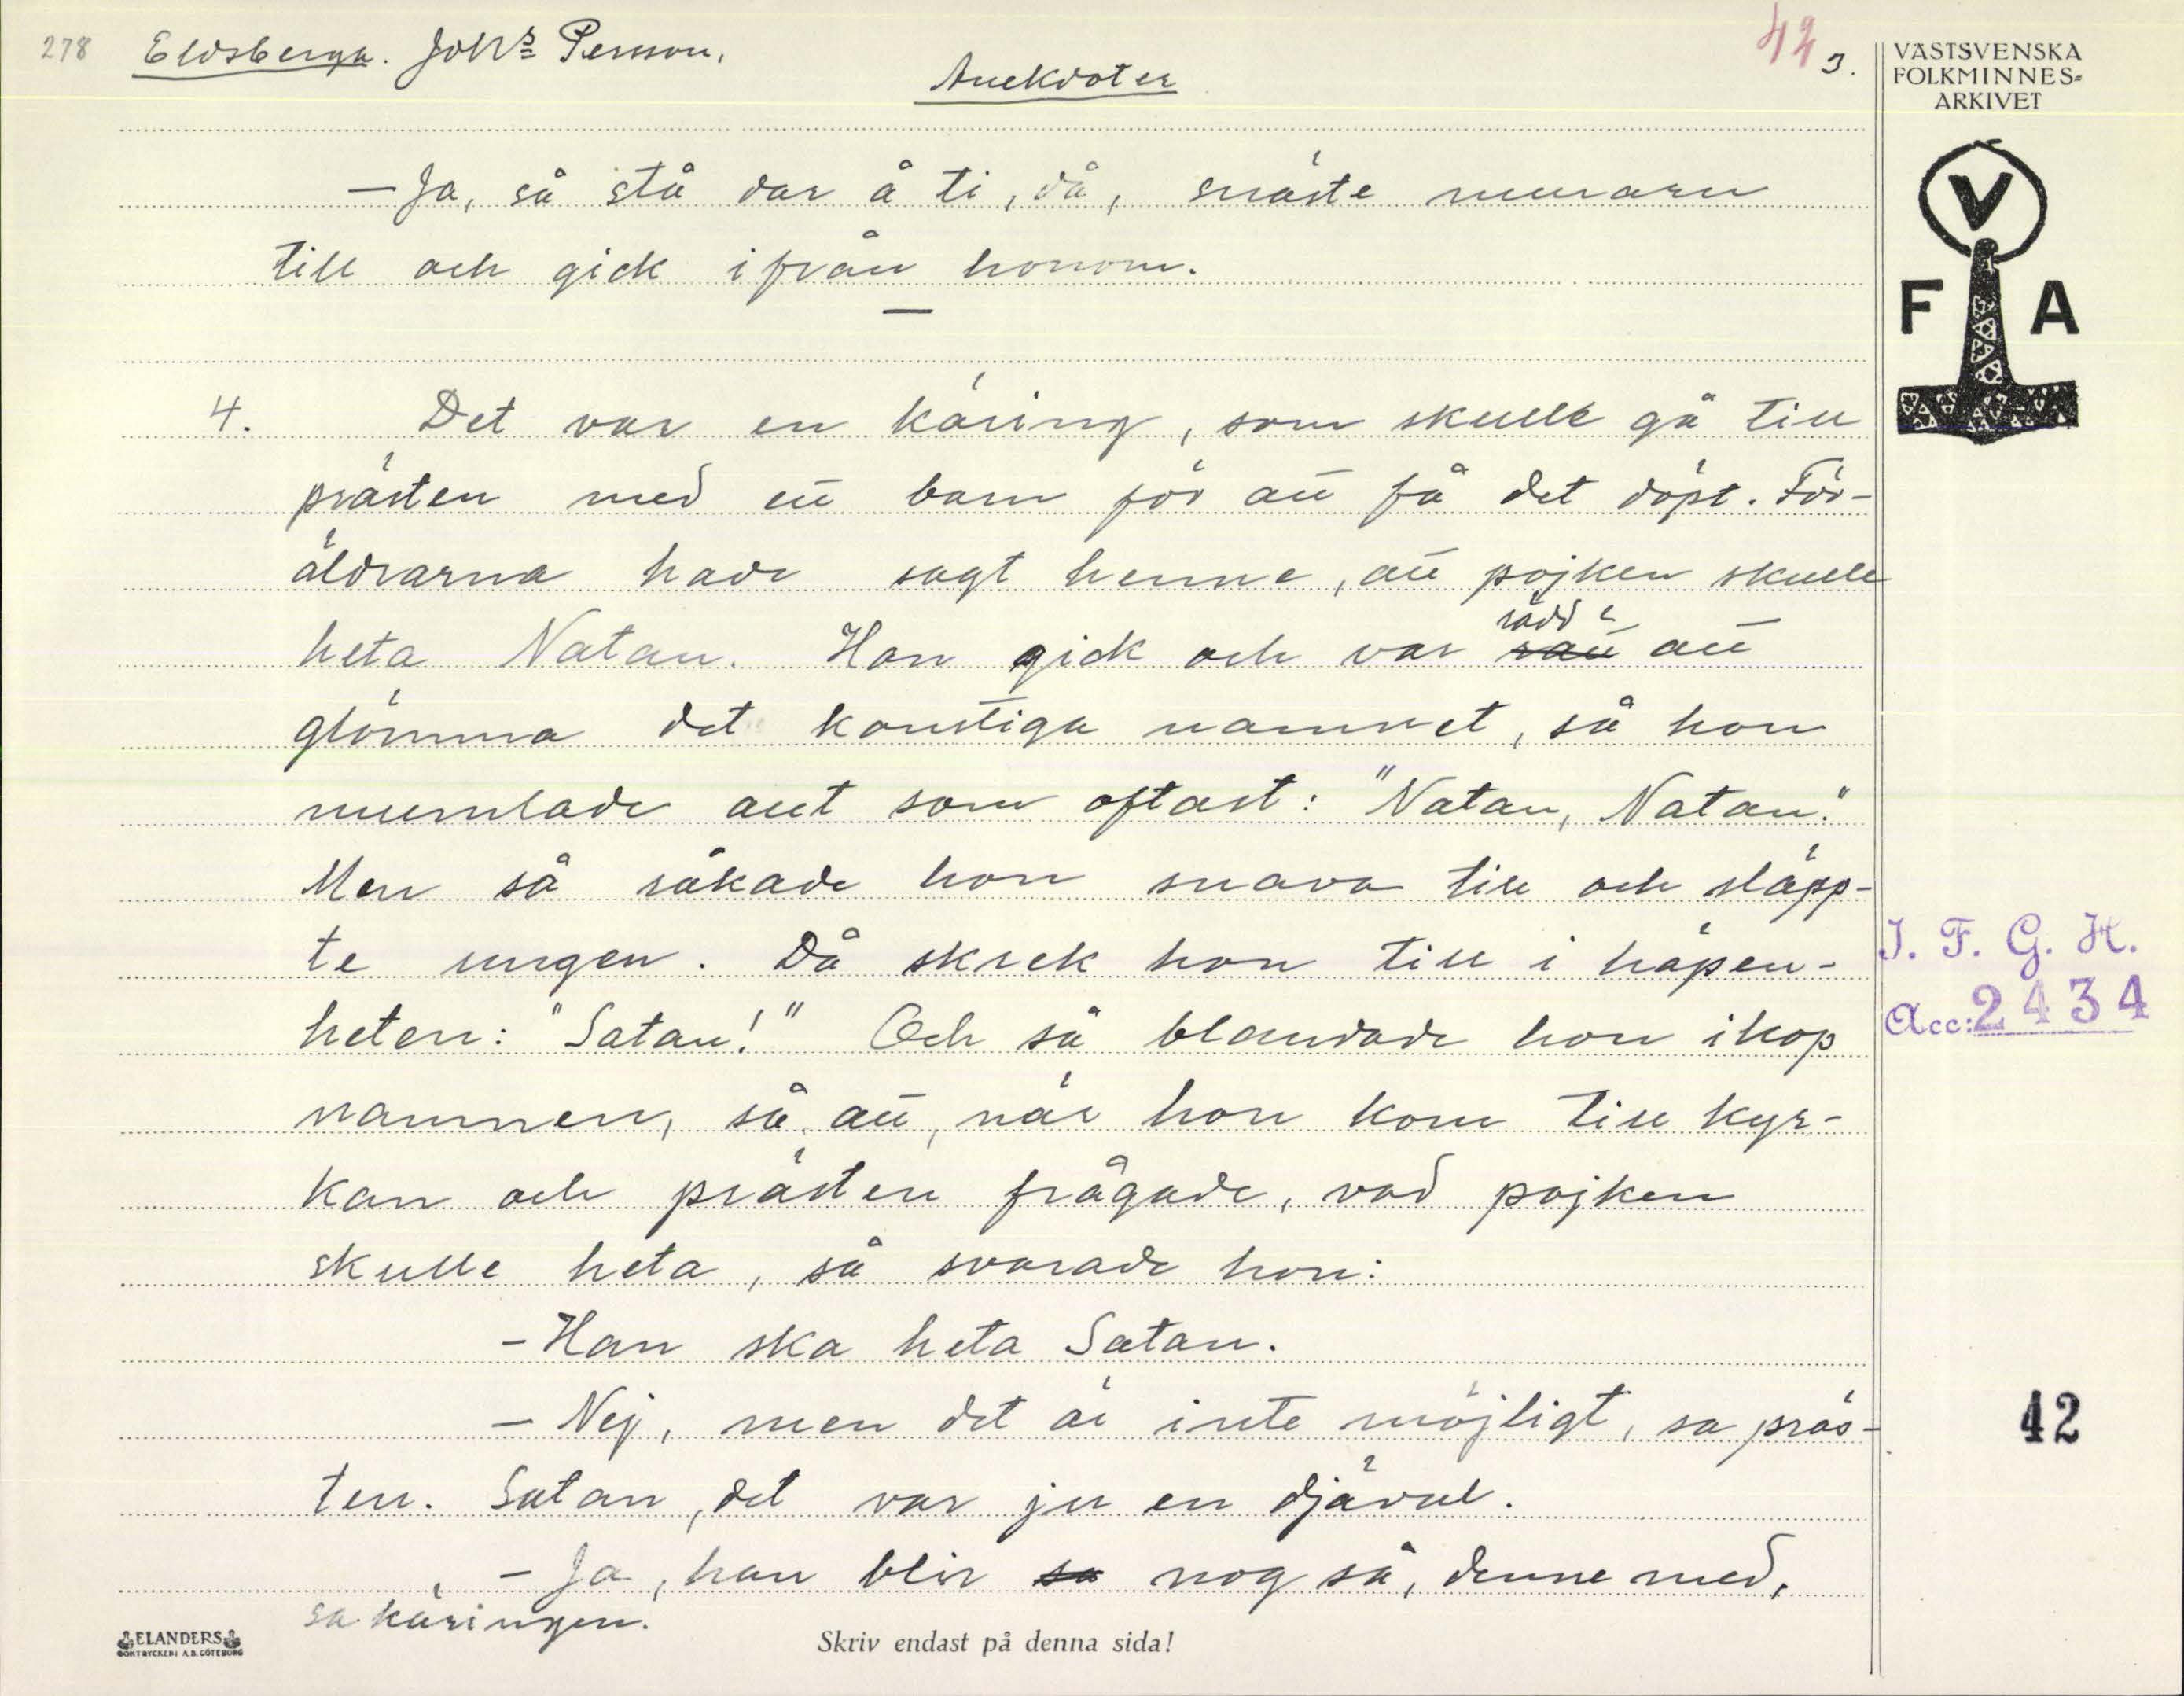 278 Eldsberga. Johs Persson.
42 3.
Anekdoter
VÄSTSVENSKA
FOLKMINNES=
ARKIVET
V
F A
- Ja, så stå dar å ti, då, snäste muraren
till och gick ifrån honom.
4. Det var en käring, som skulle gå till
prästen med ett barn för att få det döpt. För-
äldrarna hade sagt henne, att pojken skulle
heta Natan. Hon gick och var rädd att
glömma det konstiga namnet, så hon
mumlade allt som oftast: "Natan, Natan."
Men så råkade hon snava till och släpp-
te ungen. Då skrek hon till i häpen-
heten: "Satan!" Och så blandade hon ihop
namnen, så att, när hon kom till kyr-
kan och prästen frågade, vad pojken
skulle heta, så svarade hon:
- Han ska heta Satan.
- Nej, men det är inte möjligt, sa präs-
ten. Satan, det var ju en djävul.
- Ja, han blir nog så, denne med,
sa käringen.
I. F. G. H.
Acc: 2434
42
ELANDERS
BOKTRYCKERI A.B. GÖTEBORG
Skriv endast på denna sida!